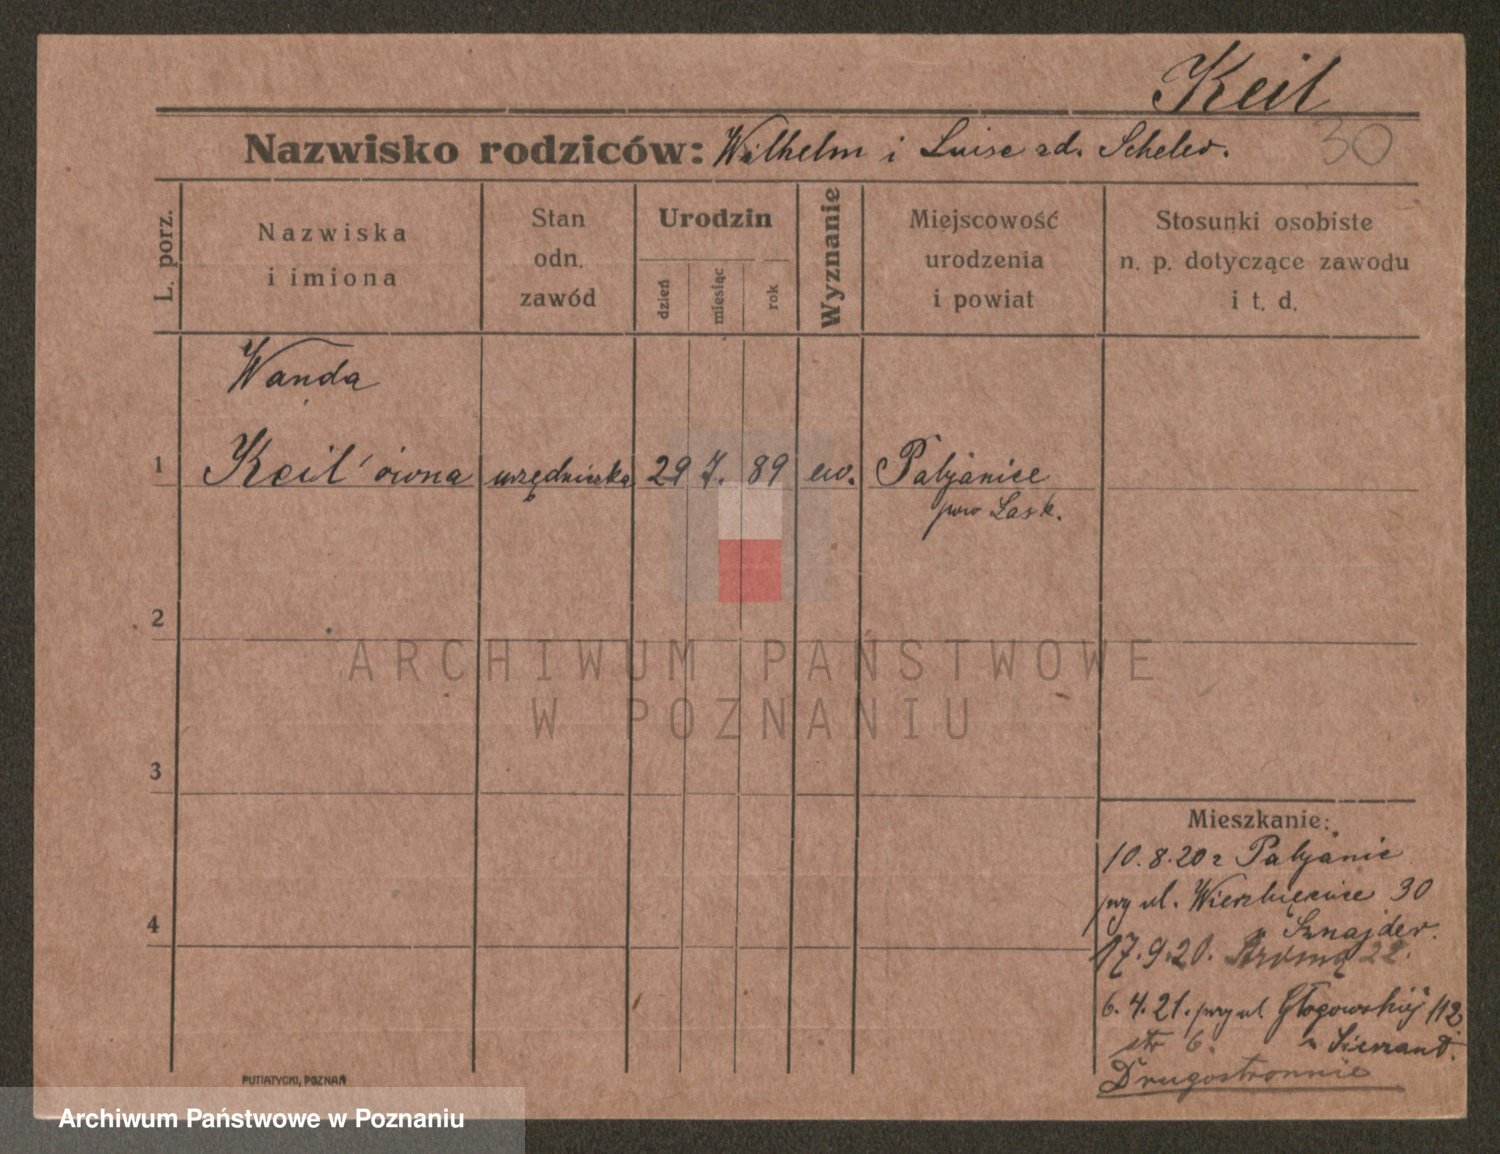 Keil
Nazwisko rodziców: Wilhelm i Luise zd. Scheler.
30
L. porz.
Nazwiska
i imiona
Stan
odn.
zawód
Urodzin
dzień
miesiąc
rok
Wyznanie
Miejscowość
urodzenia
i powiat
Stosunki osobiste
n. p. dotyczące zawodu
i t. d.
Wanda
1 Keil'ówna urzędniczka 29 7. 89 ew. Pabjanice
pow Łask.
2
3
4
Mieszkanie:
10.8.20 z Pabjanic
przy ul. Wierzbięcice 30
u Sznajder.
17.9.20. 22.
6.4.21. przy ul Głogowskiej 112
str 6. u
Drugostronnie
PUTIATYCKI, POZNAŃ
ARCHIWUM PAŃSTWOWE
W POZNANIU
Archiwum Państwowe w Poznaniu